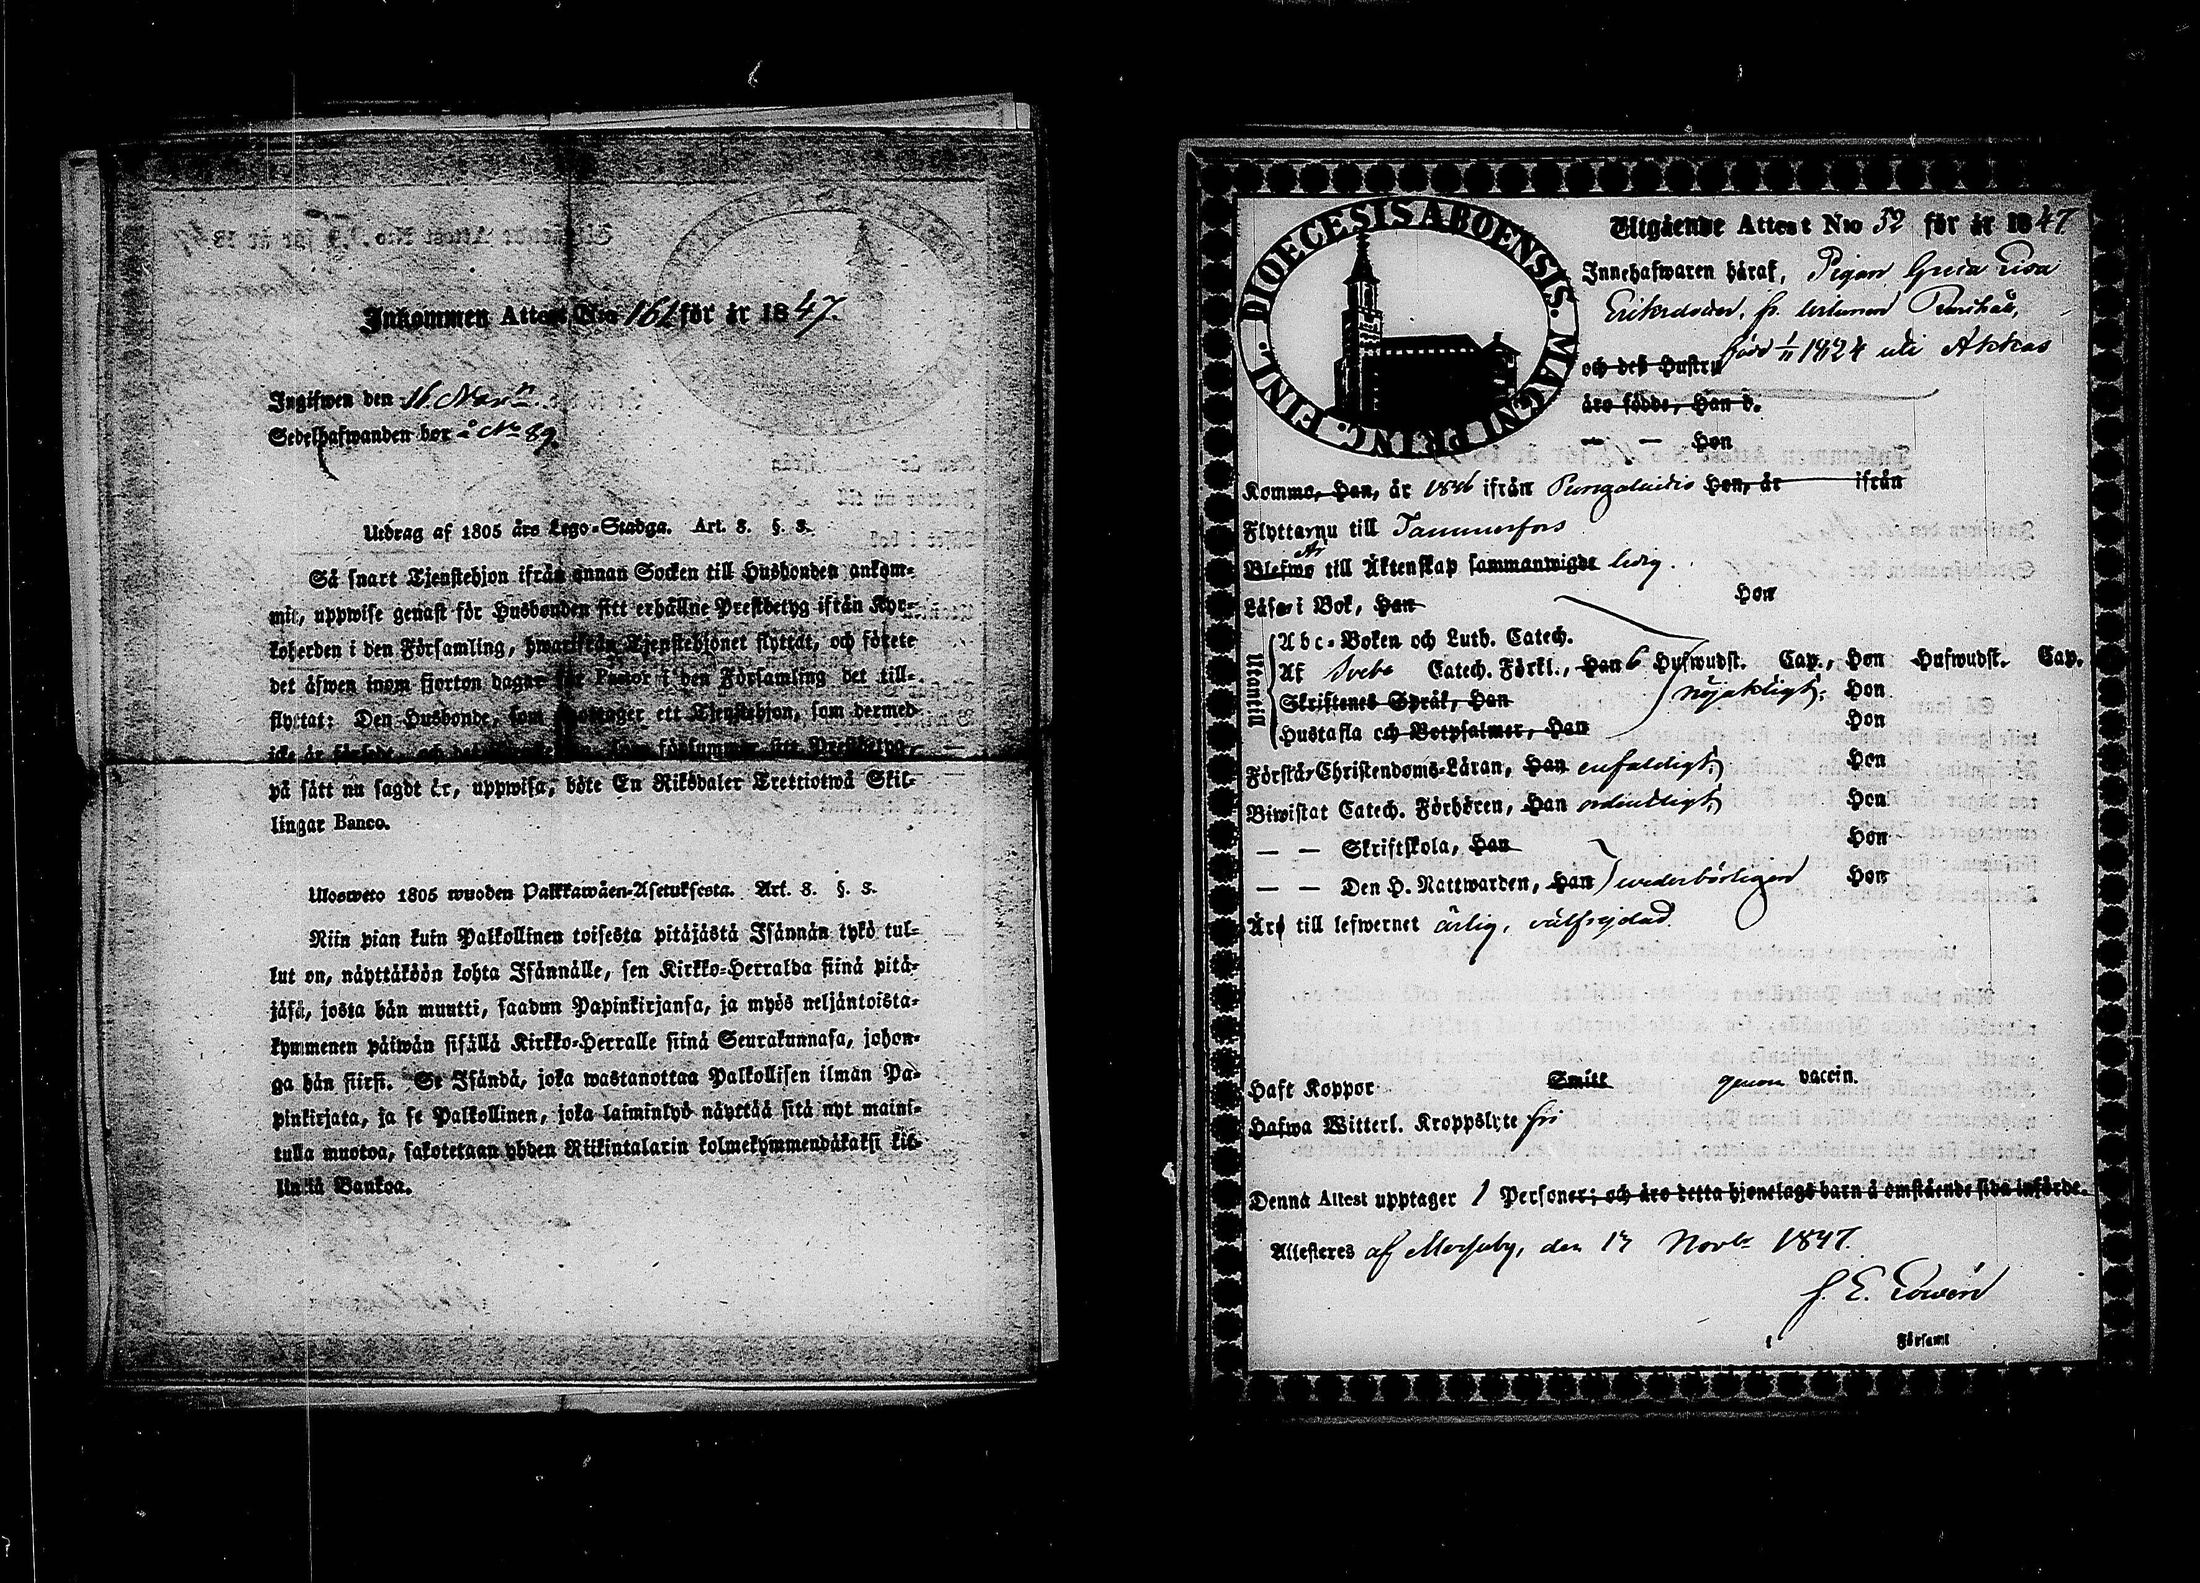 Inkommen Attest N:o 162 för år 1847.
Ingifwen den 16. Nov.
Sedelhafwanden bor å No 89.
Utdrag af 1805 års Lego-Stadga. Art. 8. §. 3.
Så snart Tjenstehjon ifrån annan Socken till Husbonden ankom-
mit, uppwise genast för Husbonden sitt erhållne Prestbetyg ifrån Kyr-
koherden i den Församling, hwarifrån Tjenstehjonet flyttat, och förete
det äfwen inom fjorton dagar för Pastor i den Församling det till-
flyttat: Den Husbonde, som emottager ett Tjenstehjon, som dermed
icke är försedt, och det som försummar sitt Prestbetyg,
på sätt nu sagdt är, uppwisa, böte En Riksdaler Trettiotwå Skil-
lingar Banco.
Ulosweto 1805 wuoden Palkkawäen-Asetuksesta. Art. 8. §. 3.
Niin pian kuin Palkollinen toisesta pitäjästä Isännän tykö tul-
lut on, näyttäköön kohta Isännälle, sen Kirkko-Herralda siinä pitä-
jäsä, josta hän muutti, saadun Papinkirjansa, ja myös neljäntoista-
kymmenen päiwän sisällä Kirkko-Herralle siinä Seurakunnasa, johon-
ga hän siirsi. Se Isändä, joka wastanottaa Palkollisen ilman Pa-
pinkirjata, ja se Palkollinen, joka laiminlyö näyttää sitä nyt maini-
tulla muotoa, sakotetaan yhden Riikintalarin kolmekymmendäkaksi kil-
linkiä Bankoa.
DIOECESIS ABOENSIS. MAGNI PRINC. FINL.
Utgående Attest N:o 52 för år 1847
Innehafwaren häraf, Pigan Greta Lisa
Eriksdotter, fr.
och deß Hustru född 1/11 1824 uti Akkas
äro födde, Han d.
— — Hon
Kommo, Han, år 1846 ifrån Pungalaitio Hon, år ifrån
Flyttar nu till Tammerfors
Är
Blefwo till Äktenskap sammanwigde ledig.
Läsa i Bok, Han Hon
Utantill
Abc-Boken och Luth. Catech.
Af Svebe Catech. Förkl., Han 6 Hufwudst. Cap., Hon Hufwudst. Cap.
Skriftenes Språk, Han nöjaktigt. Hon
Hustafla och Botpsalmer, Han Hon
Förstå Christendoms-Läran, Han enfaldigt, Hon
Biwistat Catech. Förhören, Han ordentligt, Hon
— — Skriftskola, Han Hon
— — Den H. Nattwarden, Han wederbörligen Hon
Äro till lefwernet ärlig, välfrejdad.
Haft Koppor Smitt genom vaccin.
Hafwa Witterl. Kroppslyte fri
Denna Attest upptager 1 Personer; och äro detta hjonelags barn å omstående sida införde.
Attesteres af Messuby, den 13 Novbr 1847.
Församl